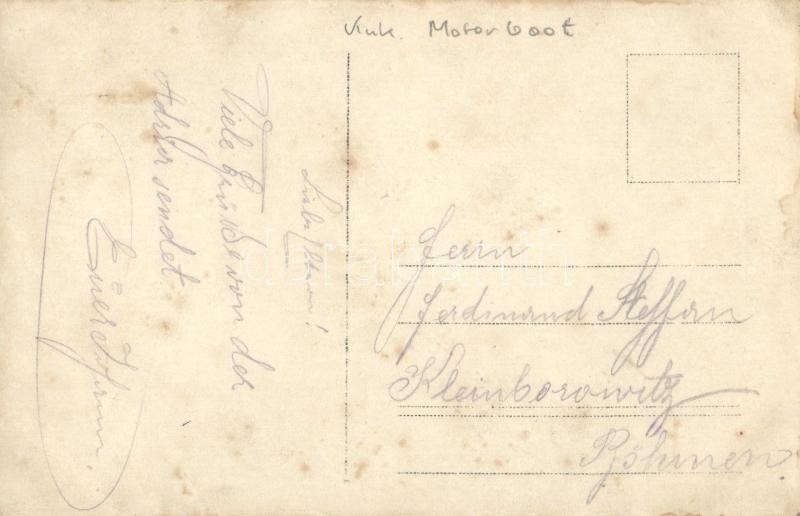 Motorboot
Liebe Eltern!
Viele Grüße von der
Adria sendet
Euer
Herrn
Ferdinand Steffan
Kleinborowitz
Böhmen